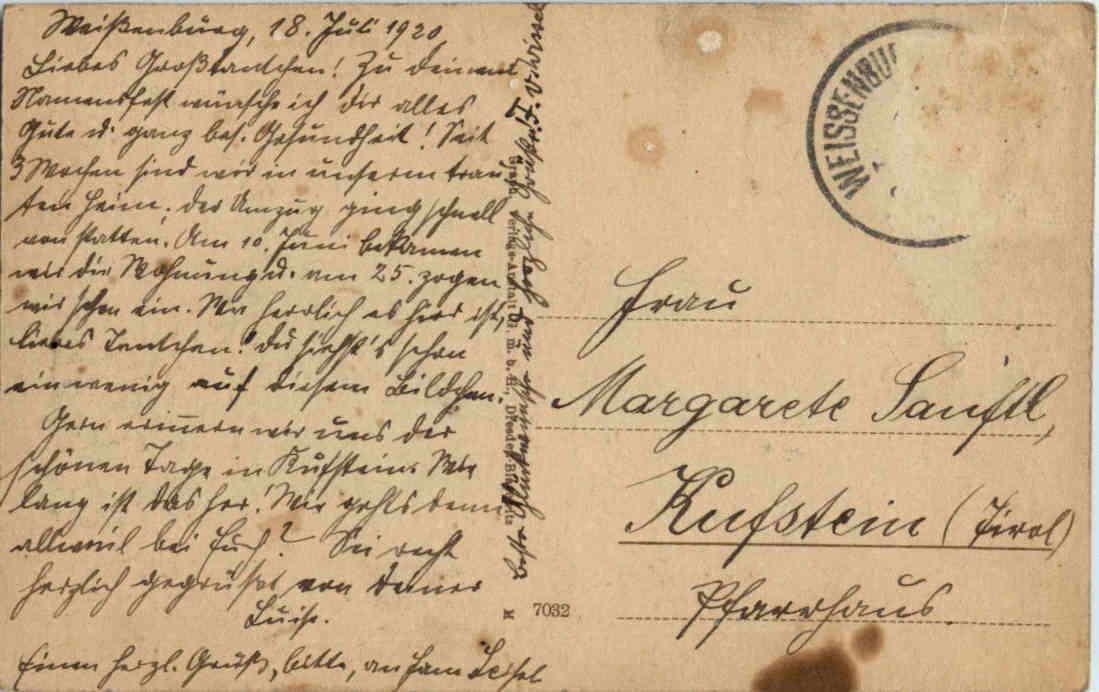 Weißenburg, 18. Juli 1920
Liebes Großtantchen! Zu deinem
Namensfest wünsche ich dir alles
Gute u. ganz bes. Gesundheit! Seit
3 Wochen sind wir in unserm trau-
ten Heim, der Umzug ging schnell
von statten. Am 10. Juni bekamen
wir die Wohnung u. am 25. zogen
wir schon ein. Wie herrlich es hier ist,
liebes Tantchen! Du siehst's schon
ein wenig auf diesem Bildchen.
Gern erinnern wir uns der
schönen Tage in Kufstein. Wie
lang ist das her! Wie gehts denn
allweil bei Euch? Sei recht
herzlich gegrüßt von Deiner
Luise.
Einen herzl. Gruß, bitte, an Fam
WEISSENBU
Frau
Margarete Sanftl,
Kufstein (Tirol)
Pfarrhaus
K 7032